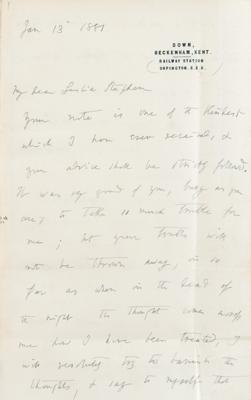 Jan 13th 1881
DOWN,
BECKENHAM, KENT.
(RAILWAY STATION
ORPINGTON. S.E.R.)
My dear Leslie Stephen
Your note is one of the kindest
which I have ever received, &
your advice shall be strictly followed.
It was very good of you, busy as you
are, to take so much trouble for
me; but your trouble will
not be thrown away, in so
far as when in the dead of
the night the thought comes
me how I have been treated, I
will resolutely try to banish the
thoughts, & say to myself that